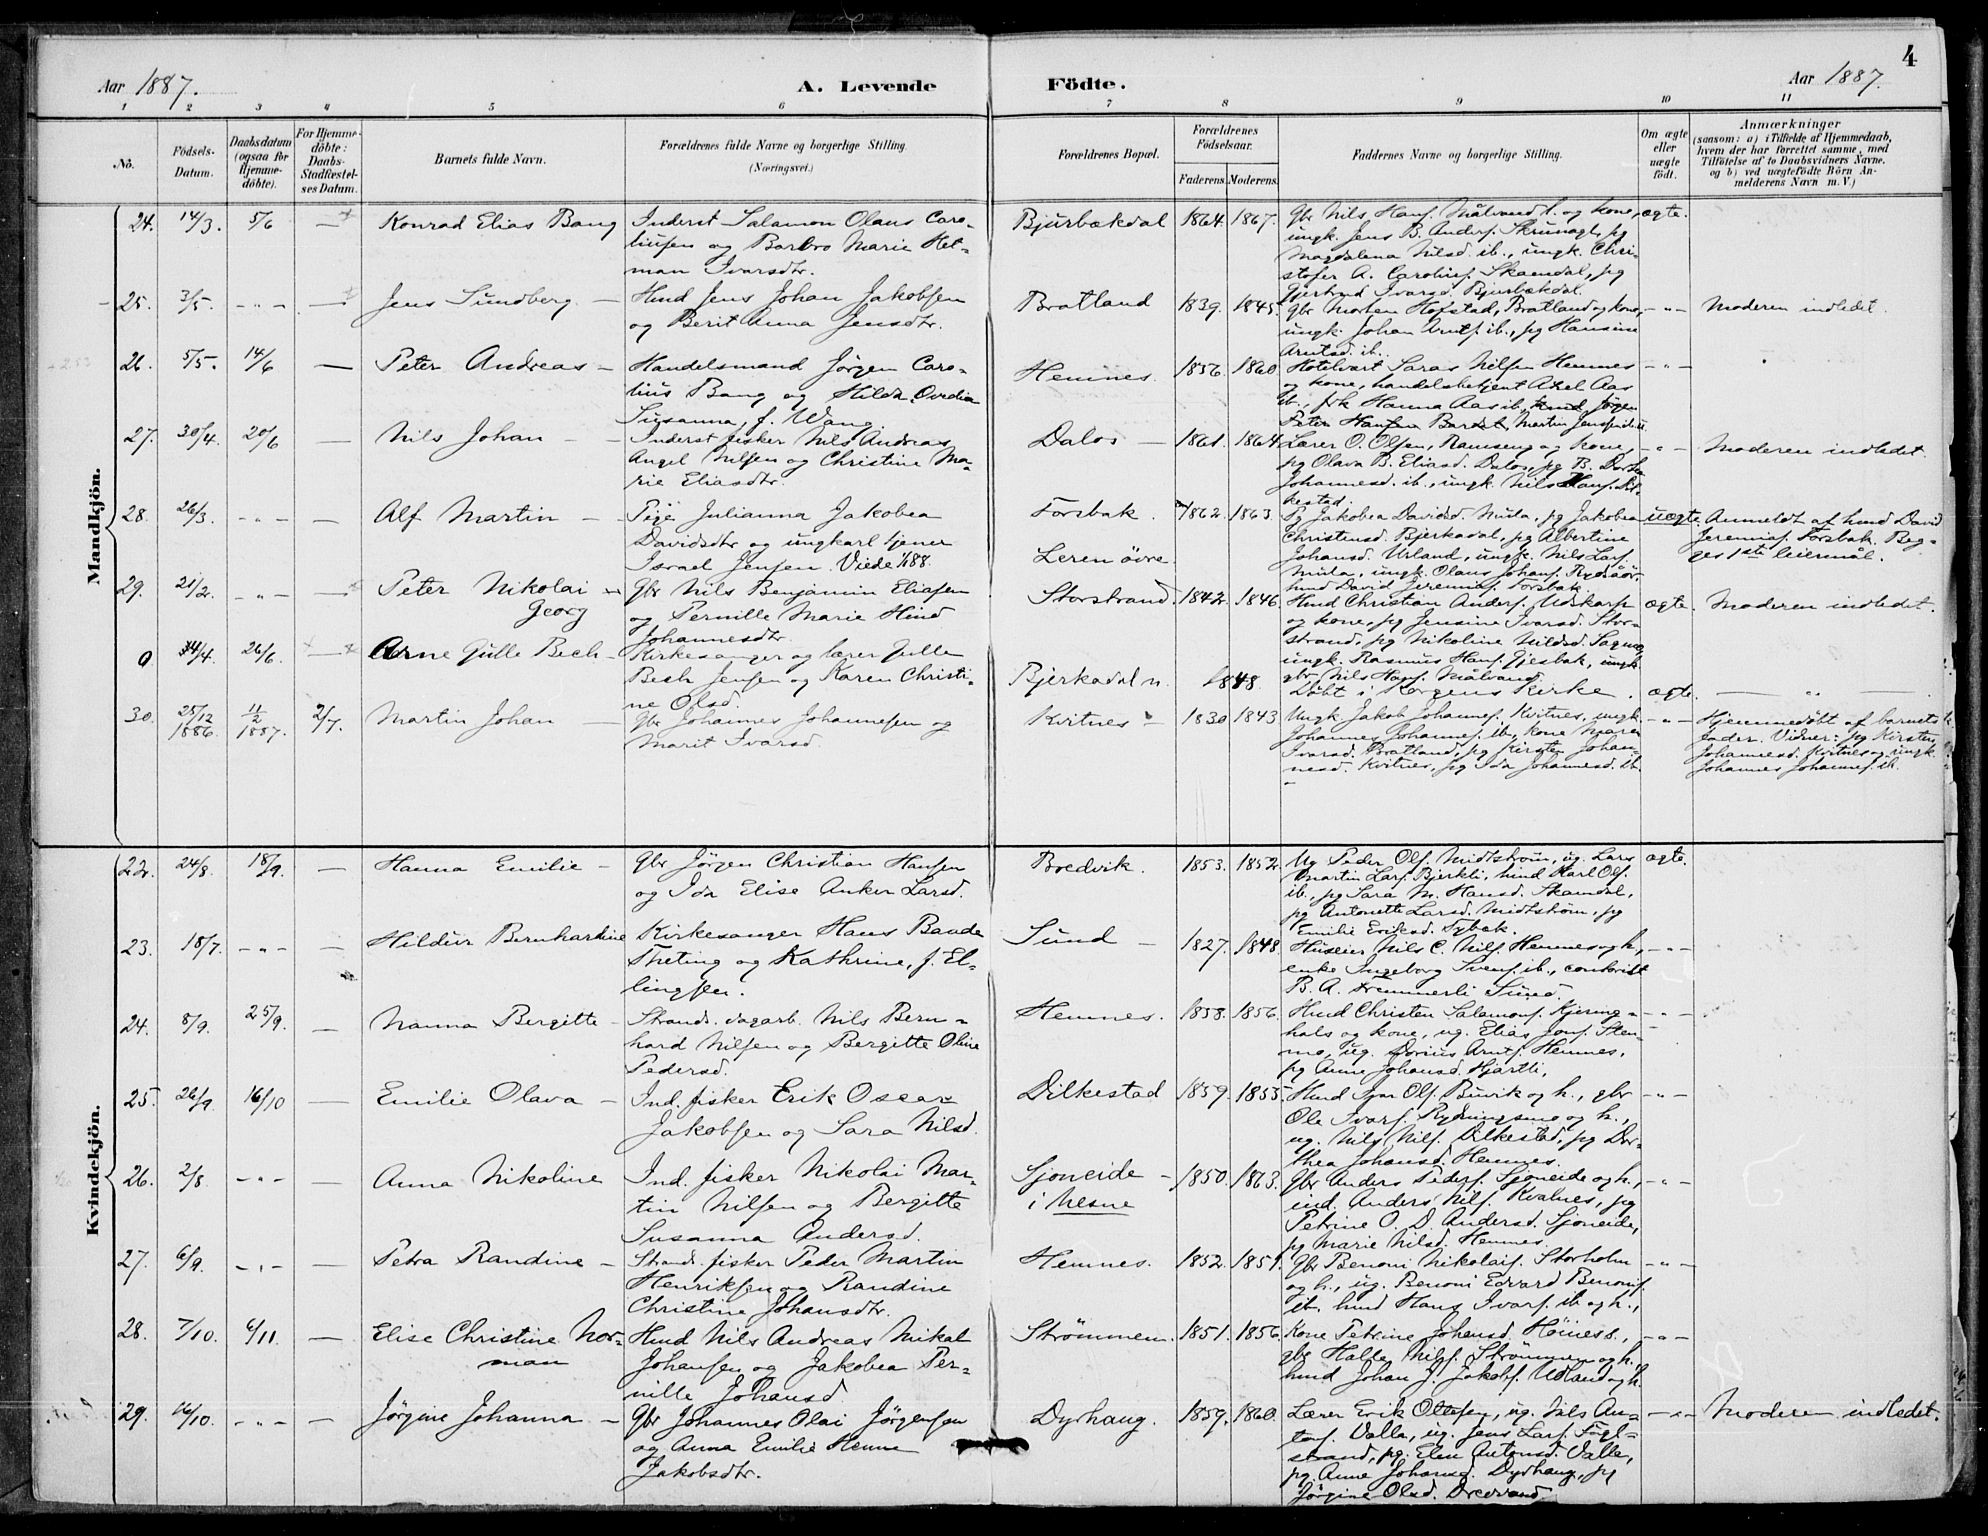 4
Aar 1887.
A. Levende Födte.
Aar 1887.
1 2 3 4 5 6 7 8 9 10 11
No.
Födsels-Datum.
Daabsdatum (ogsaa for Hjemme-döbte).
For Hjemme-döbte: Daabs-Stadfæstel-ses Datum.
Barnets fulde Navn.
Forældrenes fulde Navne og borgerlige Stilling.
(Næringsvei.)
Forældrenes Bopæl.
Forældrenes Födselsaar.
Faderens. Moderens.
Faddernes Navne og borgerlige Stilling.
Om ægte eller uægte födt.
Anmærkninger
(saasom: a) i Tilfælde af Hjemmedaab,
hvem der har forrettet samme, med
Tilföielse af to Daabsvidners Navne,
og b) ved uægtefödte Börn An-
melderens Navn m. V.)
Mandkjön.
24. 14/3. 5/6 — Konrad Elias Bang
Inderst Salamon Olaus Caro-
liusen og Barbro Marie Het-
man Ivarsdtr.
Bjurbækdal 1864. 1867.
Gbr Nils Hans. Målvand l. og kone,
ungk. Jens B. Anders. Skrunagl, pg
Magdalena Nilsd. ib., ungk. Chri-
stofer A. Carolius. Skamdal, pg
Gjertrud Ivarsd. Bjurbækdal.
ægte.
25. 3/5. -"- — Jens Sundberg —
Hmd Jens Johan Jakobsen
og Berit Anna Jensdtr.
Bratland 1839. 1845.
Gbr Morten Hofstad, Bratland og kone,
ungk. Johan Arnts. ib., pg Hansine
Arntsd. ib..
-"- Moderen indledet.
26. 5/5. 14/6 — Peter Andreas —
Handelsmand Jørgen Caro-
lius Bang og Hilda Ovedia
Susanna, f. Wang.
Hemnes. 1856. 1860.
Hotelvært Saras Nilsen Hemnes
og kone, handelsbetjent Axel Aas
ib., frk Hanna Aas ib., hmd Jørgen
Peter Hansen
-"-
27. 30/4. 20/6 — Nils Johan —
Inderst fisker Nils Andreas
Angel Nilsen og Christine Ma-
rie Eliasdtr.
Dalos — 1861. 1864.
Lærer O. Olsen, Ramseng og kone,
pg Olava B. Eliasd. Dalos, pg B. Dorthea
Johannesd. ib., ungk. Nils Hans. Dil-
kestad.
-"- Moderen indledet.
28. 26/3. -"- — Alf Martin —
Pige Julianna Jakobea
Davidsdtr og ungkarl tjener
Israel Jensen. Viede 1/88.
Forsbak.
Leren övre. 1862. 1863.
Pg Jakobea Davidsd. Mula, pg Jakobea
Christensd. Bjerkadal, pg Albertine
Johansd. Urland, ungk. Nils Lars.
Mula, ungk. Olaus Johans. Rydsåör,
hmd David Jeremias. Forsbak.
uægte. Anmeldt af hmd David
Jeremias. Forsbak. Beg-
ges 1ste leiermål.
29. 21/2. -"- — Peter Nikolai
Georg
Gbr Nils Benjamin Eliasen
og Pernille Marie Hind
Johannesdtr.
Storstrand. 1842. 1846.
Hmd Christian Anders. Udskarpen
og kone, pg Jensine Ivarsd. Stor-
strand, pg Nikoline Nildsd. Sagmo,
ungk. Rasmus Hans. Gjesbak, ungk
gbr Nils Hans. Målvand.
ægte. Moderen indledet.
0 4/4. 26/6. — Arne Gulle Bech —
Kirkesanger og lærer Julle
Bech Jensen og Karen Christi-
ne Olsd.
Bjerkadal n. 1848.
Döbt i Korgens Kirke.
ægte. — " —
30. 25/12 1886. 11/2 1887. 2/7. Martin Johan —
Gbr Johannes Johannesen og
Marit Ivarsd.
Kvitnes — 1830 1843
Ungk Jakob Johannes. Kvitnes, ungk.
Johannes Johannes. ib, kone Maren
Ivarsd. Bratland, pg Kirsten Johan-
nesd. Kvitnes, pg Ida Johannesd. ib.
-"- Hjemmedöbt af barnets
fader. Vidner: pg Kirsten
Johannesd. Kvitnes og ungk
Johannes Johannes. ib.
Kvindekjön.
22. 24/8. 18/9. — Hanna Emilie —
Gbr Jörgen Christian Hansen
og Ida Elise Anker Larsd.
Bredvik. 1853. 1852.
Ug Peder Ols. Midtström, ug. Lars
Martin Lars. Bjerkli, hmd Karl Ols.
ib., pg Sara M. Hansd. Skamdal,
pg Antonette Larsd. Midtström, pg
Emilie Eriksd. Sybak.
ægte.
23. 18/7. -"- — Hildur Bernhardine
Kirkesanger Hans Baade
Theting og Kathrine, f. El-
lingsen.
Sund — 1827. 1848.
Huseier Nils C. Nils. Hemnes og h.,
enke Ingeborg Svens. ib., contorist
B. A. Fremmerli Sund.
-"-
24. 8/9. 25/9. — Nanna Bergitte —
Strands. dagarb. Nils Bern-
hard Nilsen og Bergitte Oline
Pedersd.
Hemnes. 1858. 1856.
Hmd Christen Salamons. Kjering-
hals og kone, ug. Elias Jons. Sten-
mo, ug. Dorius Arnts. Hemnes,
pg Anne Johansd. Hjartli,
-"-
25. 26/9. 16/10 — Emilie Olava —
Ind. fisker Erik Oscar
Jakobsen og Sara Nilsd.
Dilkestad 1859. 1855.
Hmd Ivar Ols. Buvik og h., gbr
Ole Ivars. Rydningsmo og h.,
ug. Nils Nils. Dilkestad, pg Dor-
thea Johansd. Hemnes.
-"-
26. 2/8. -"- — Anna Nikoline
Ind. fisker Nikolai Mar-
tin Nilsen og Bergitte
Susanna Andersd.
Sjoneide —
i Nesne 1850. 1863.
Gbr Anders Peders. Sjoneide og h.,
ind. Anders Nils. Kvalnes, pg
Petrine O. D. Andersd. Sjoneide,
pg Marie Nilsd. Hemnes.
-"-
27. 6/9. -"- — Petra Randine —
Strands. fisker Peder Martin
Henriksen og Randine
Christine Johansdtr.
Hemnes. 1852. 1851.
Gbr Benoni Nikolais. Storholm
og h., ug. Benoni Edvard Benonis.
ib. hmd Hans Ivars. ib og h.,
-"-
28. 7/10. 6/11. — Elise Christine Nor-
man
Hmd Nils Andreas Mikal
Johansen og Jakobea Per-
nille Johansd.
Strömmen. 1851. 1856.
Kone Petrine Johansd. Höines,
gbr Halle Nils. Strömmen og h.,
hmd Johan J. Jakobs. Udland og h.
-"-
29. 16/10. -"- — Jörgine Johanna —
Gbr Johannes Olai Jörgensen
og Anna Emilie Hemne
Jakobsdtr.
Dyrhaug. 1859. 1860.
Lærer Erik Oltesen, ug. Nils An-
tons. Valla, ug. Jens Lars. Fögl-
strand, pg. Elen Antonsd. Valle,
pg. Anne Johansd. Dyrhaug, pg
Jörgine Olsd.
-"- Moderen indledet.